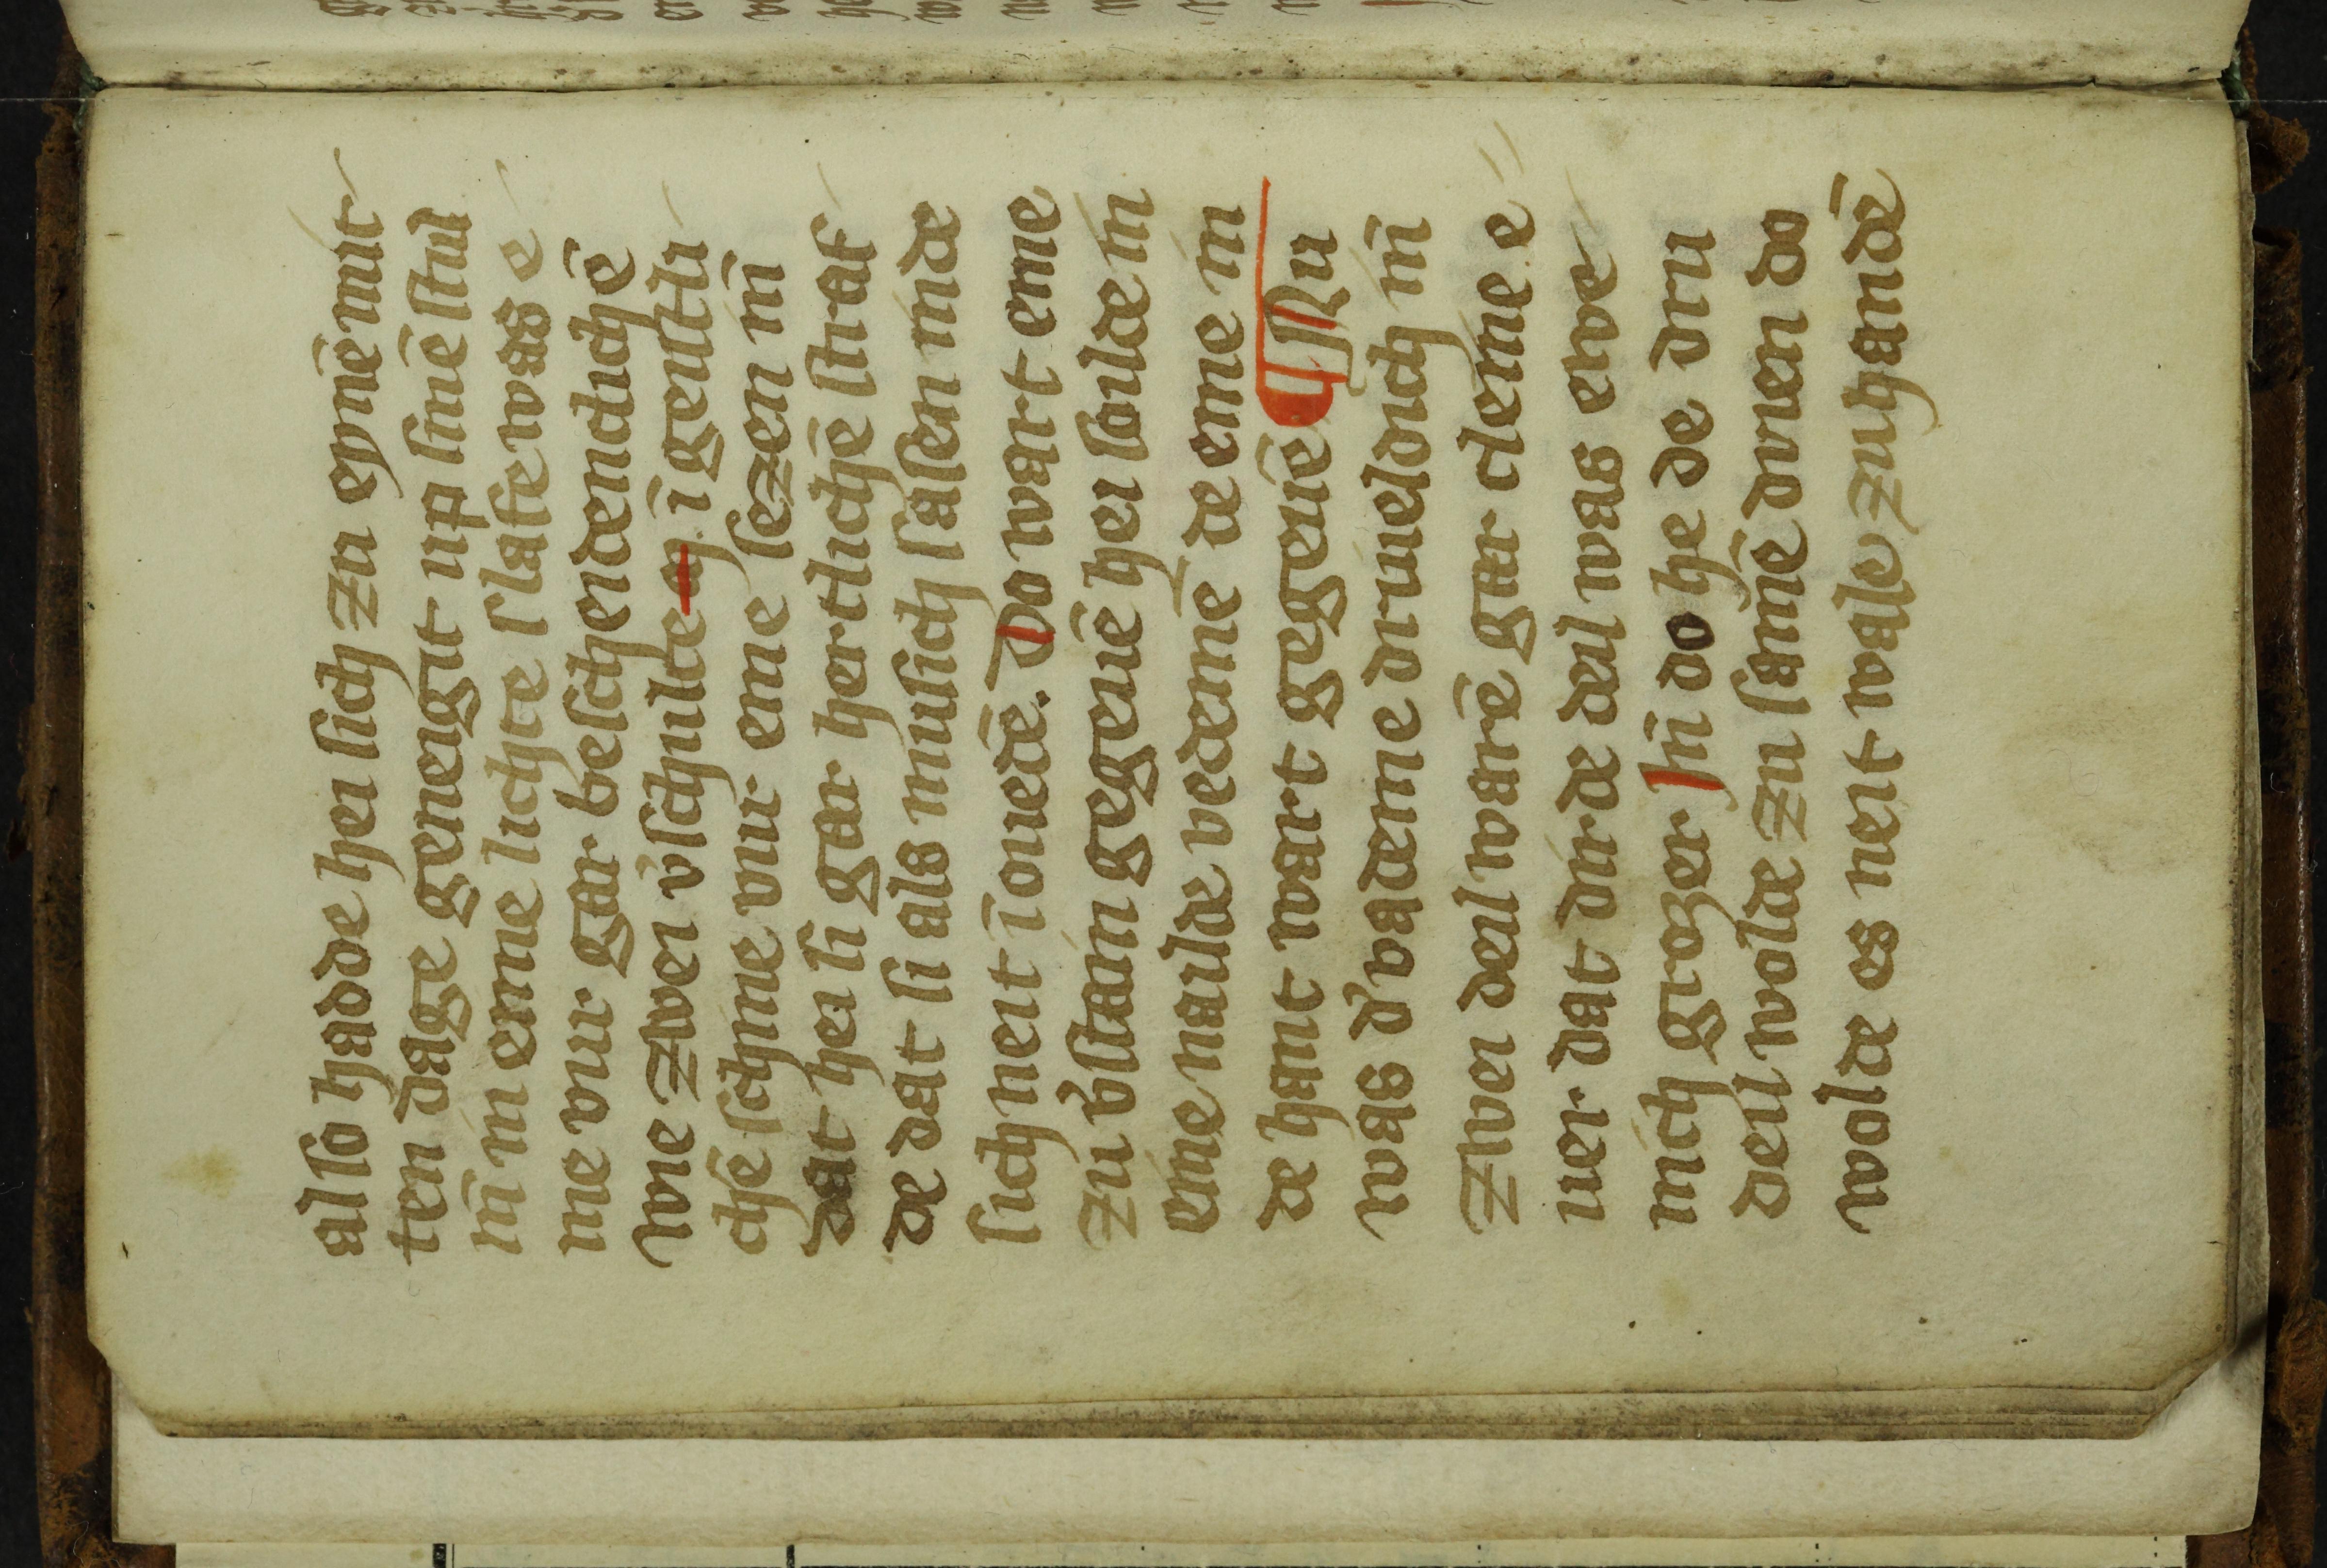 also hadde hei sich zu eynē mit
ten dage geneigit up sinē stuil
in̄ in eime lichte slafe was e
me vur gar bescheidenclichē
wie zwei v̓schulte ī geistli
chē schine vur eme sezen in̄
dat hei si gar hertlichē straf
de dat si als muisich sasen inde
sich neit īouedē. Do wart eme
zu v̓stain gegeuē hei soulde in
eme nailde vedeme de eme in
de hant wart gegeuē ¶ Nu
was d̓ vademe drueldich in̄
zwei deil warē gar cleine e
uer dat dirde deil was ewe
nich grozer in̄ do he de dru
deil wolde zu samē duen do
wolde es neit wale zuhandē